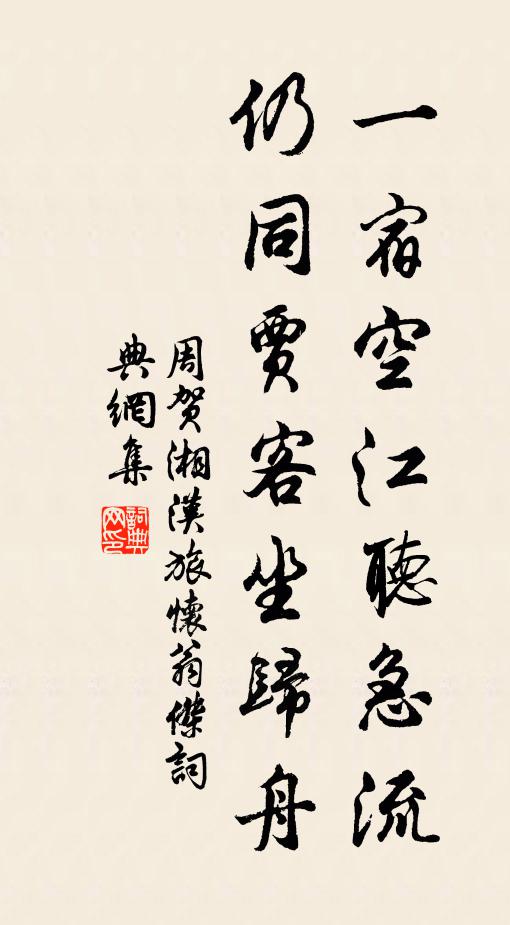 一宿空江聽急流
仍同賈客坐歸舟
周賀湘漢旅懷翁傑詞
典網集
詞典網印